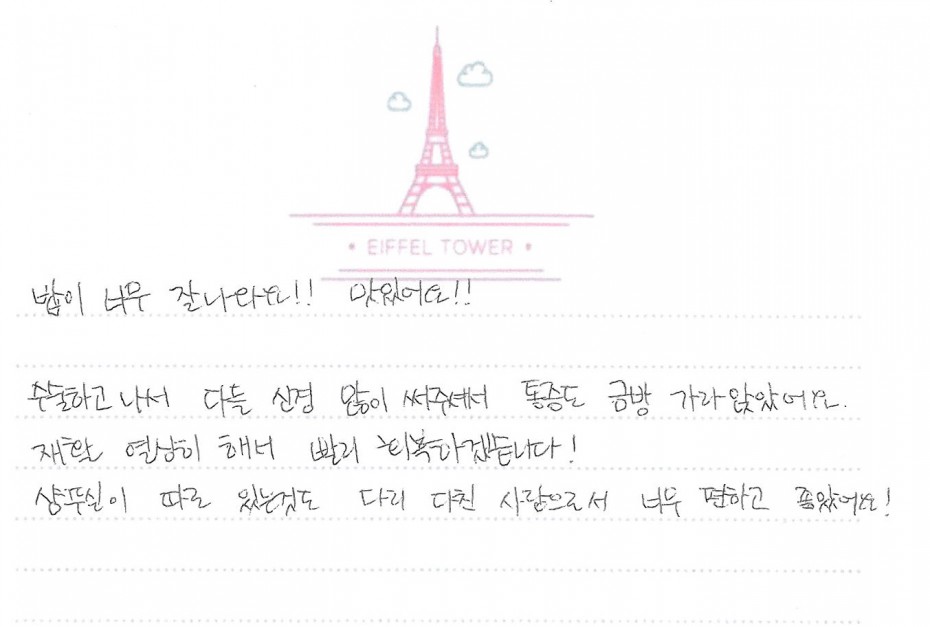 • EIFFEL TOWER •
밥이 너무 잘나와요!! 맛있어요!!
수술하고 나서 다들 신경 많이 써주셔서 통증도 금방 가라앉았어요.
재활 열심히 해서 빨리 회복하겠습니다!
샴푸실이 따로 있는것도 다리 다친 사람으로서 너무 편하고 좋았어요!